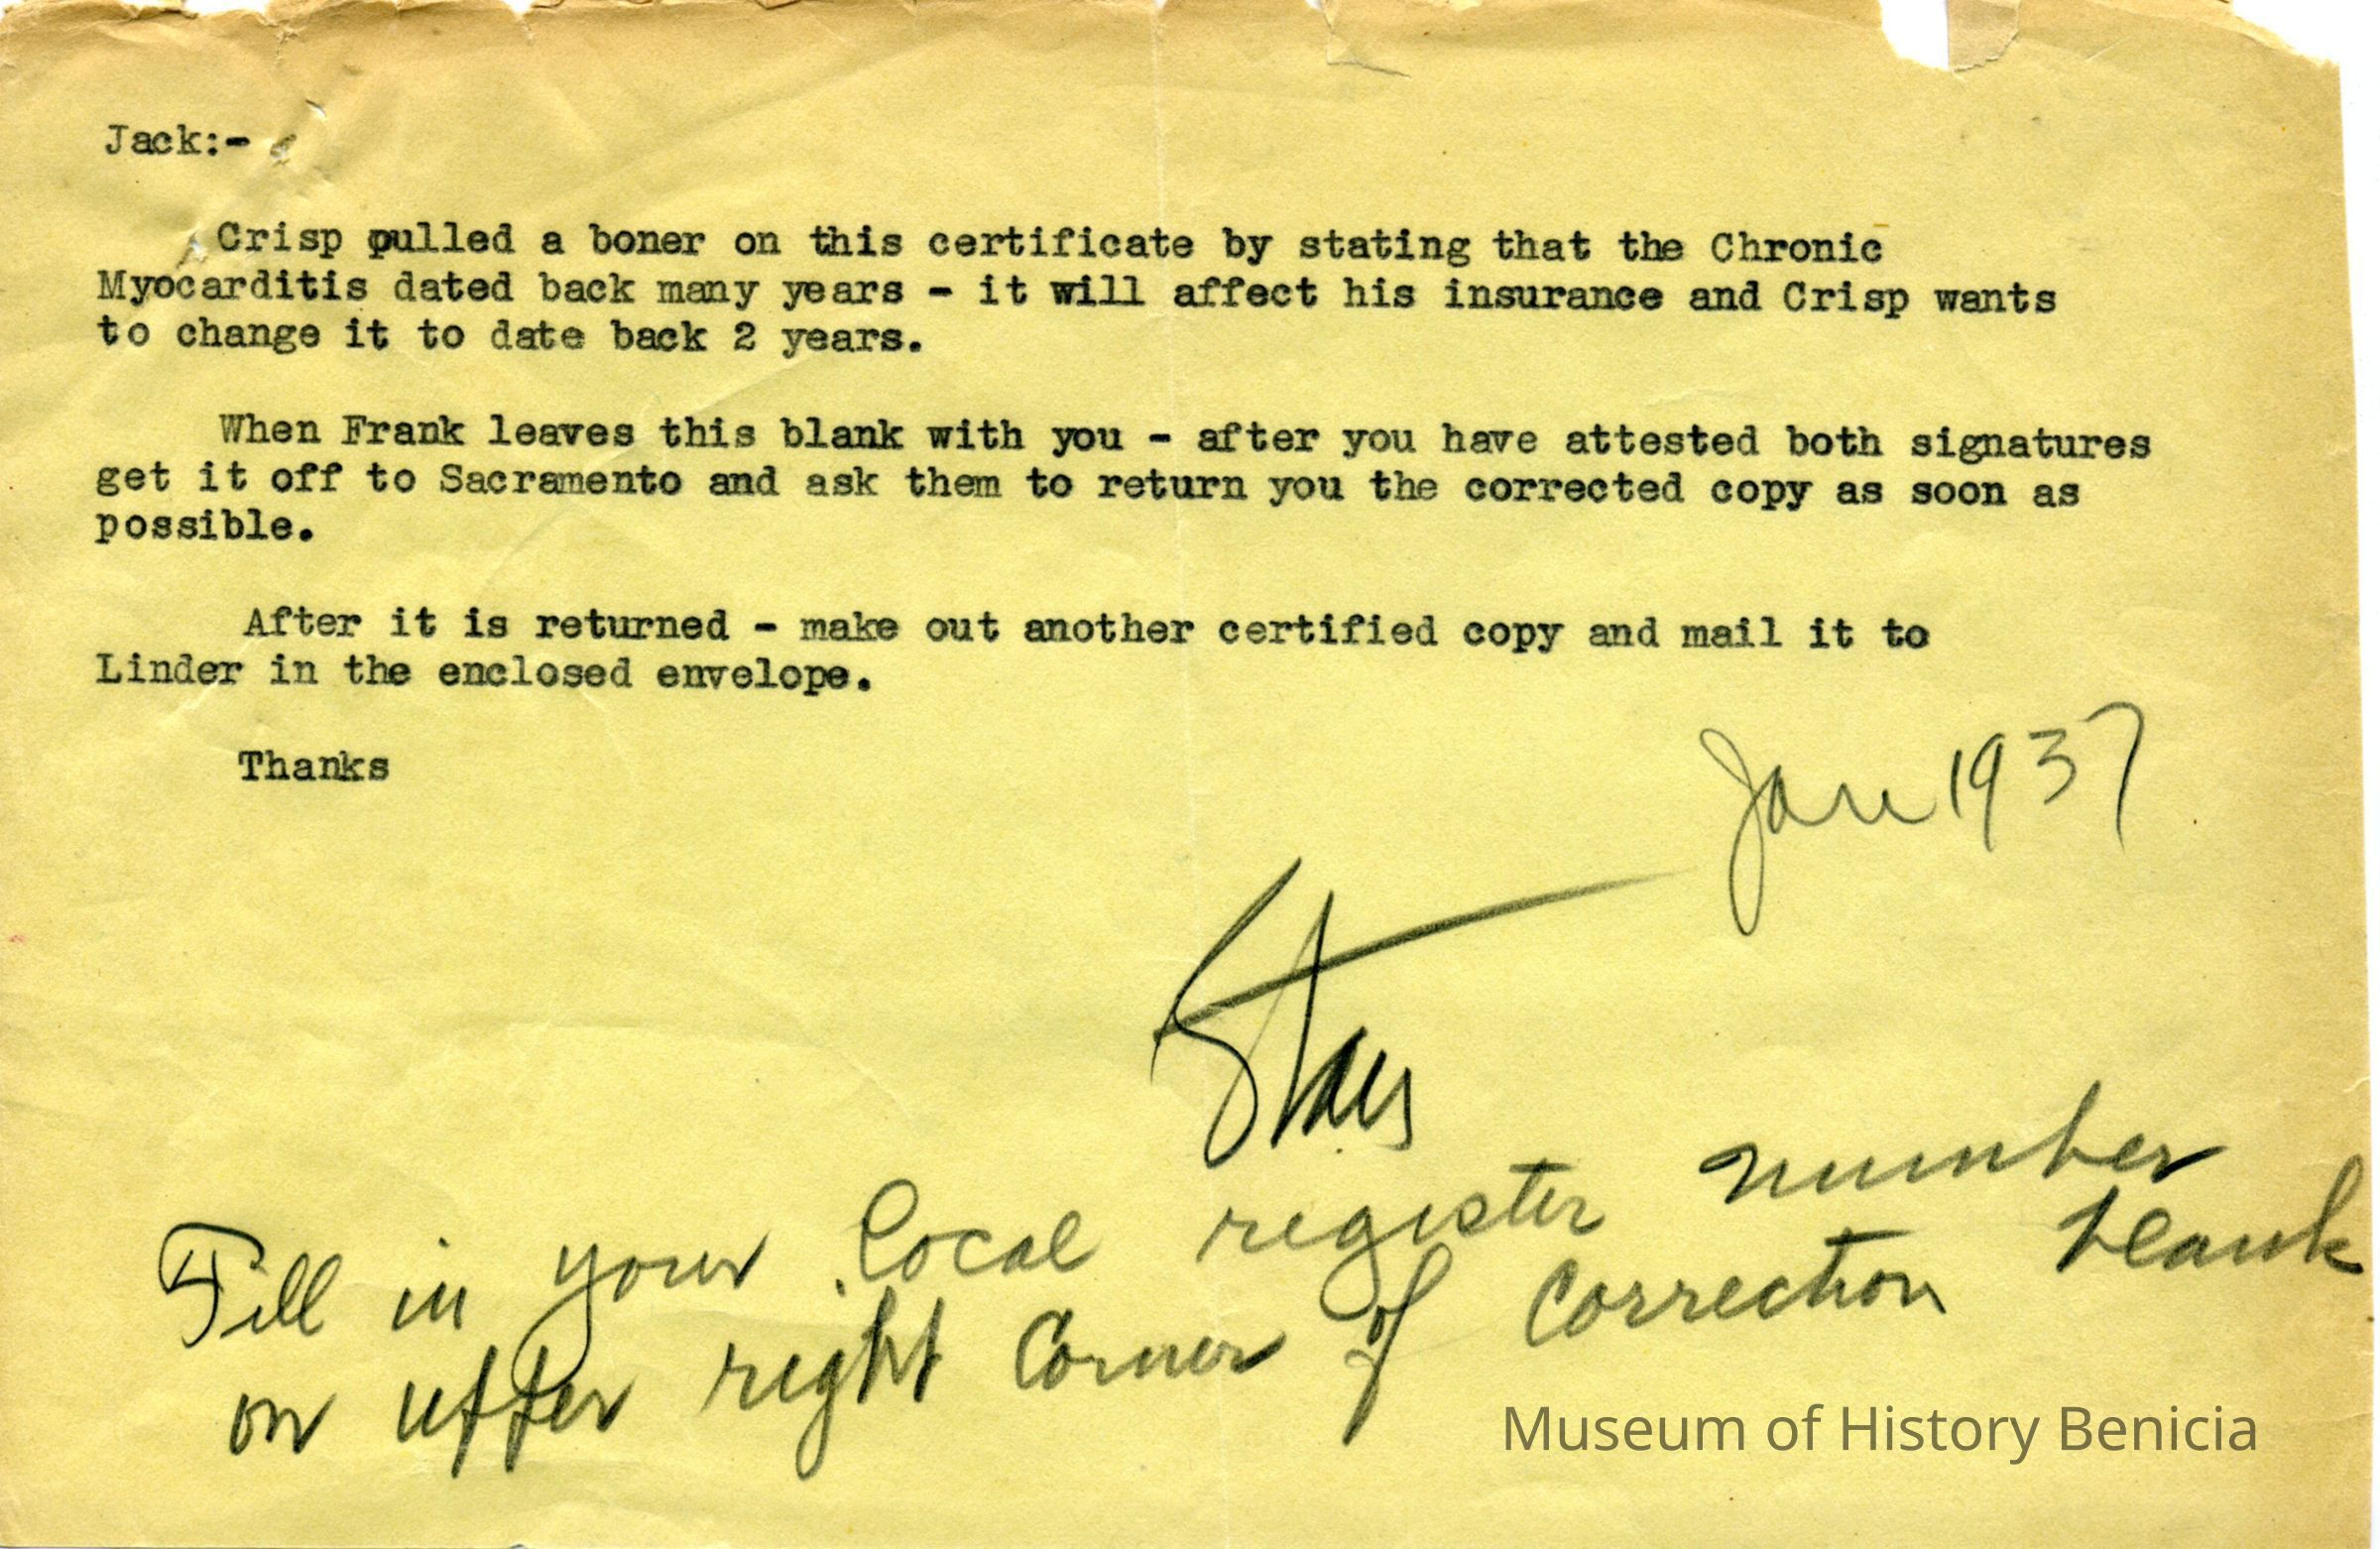 Jack:-
Crisp pulled a boner on this certificate by stating that the Chronic
Myocarditis dated back many years - it will affect his insurance and Crisp wants
to change it to date back 2 years.
When Frank leaves this blank with you - after you have attested both signatures
get it off to Sacramento and ask them to return you the corrected copy as soon as
possible.
After it is returned - make out another certified copy and mail it to
Linder in the enclosed envelope.
Thanks
1937
Fill in your local register number
on upper right Corner of Correction blank
Museum of History Benicia